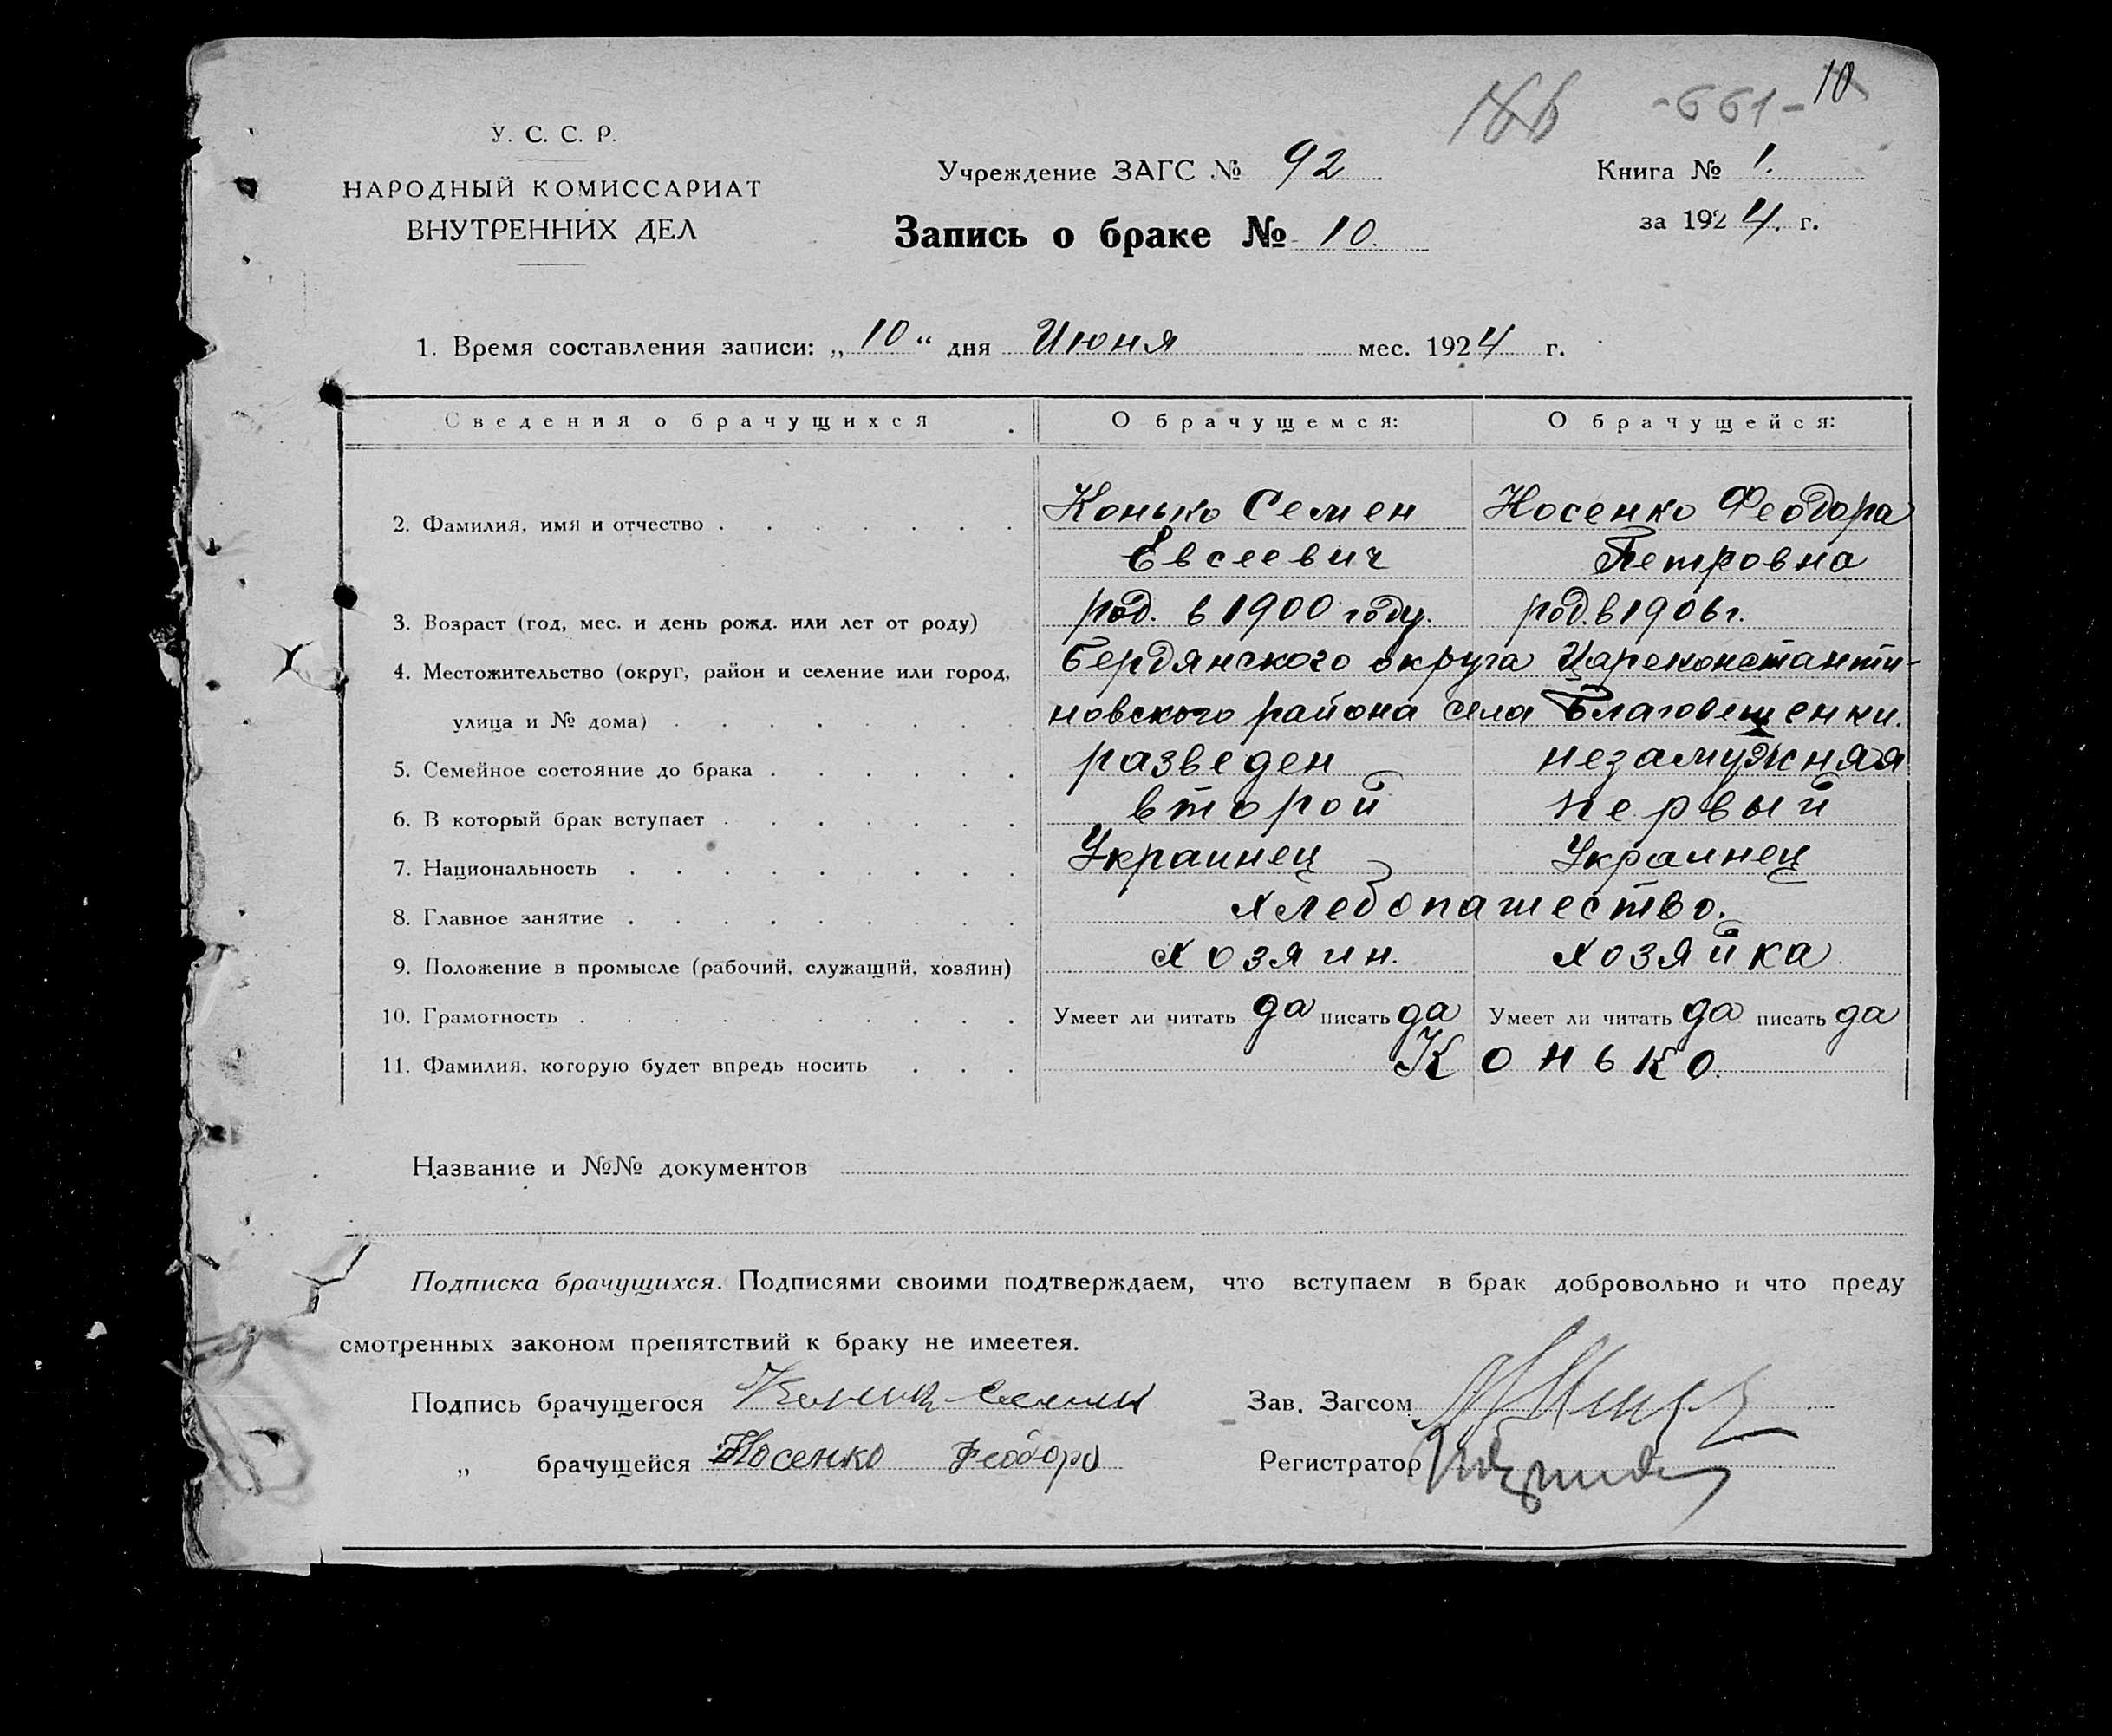 186 -661- 10
У. С. С. Р.
НАРОДНЫЙ КОМИССАРИАТ
ВНУТРЕННИХ ДЕЛ
Учреждение ЗАГС № 92
Книга № 1.
Запись о браке № 10.
за 1924. г.
1. Время составления записи: „10“ дня Июня мес. 1924 г.
Сведения о брачущихся О брачущемся: О брачущейся:
2. Фамилия, имя и отчество Конько Семен Носенко Феодора
Евсеевич Петровна
3. Возраст (год, мес. и день рожд. или лет от роду) род. в 1900 году. род. в 1906 г.
4. Местожительство (округ, район и селение или город, Бердянского округа Цареконстанти-
улица и № дома) новского района села Благовещенки.
5. Семейное состояние до брака разведен незамужняя
6. В который брак вступает второй первый
7. Национальность Украинец Украинец
8. Главное занятие хлебопашество.
9. Положение в промысле (рабочий, служащий, хозяин) хозяин. хозяйка
10. Грамотность Умеет ли читать да писать да Умеет ли читать да писать да
11. Фамилия, которую будет впредь носить Конько.
Название и №№ документов
Подписка брачущихся. Подписями своими подтверждаем, что вступаем в брак добровольно и что преду
смотренных законом препятствий к браку не имеетея.
Подпись брачущегося Зав. Загсом
„ брачущейся Носенко Феодора Регистратор